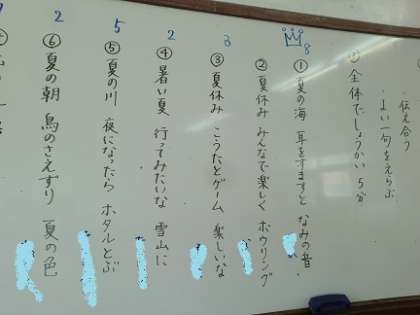 ・伝え合う
・よい一句をえらぶ
全体でしょうかい 5分
8
① 夏の海 耳をすますと なみの音
② 夏休み みんなで楽しく ボウリング
3
③ 夏休み こうたとゲーム 楽しいな
2
④ 暑い夏 行ってみたいな 雪山に
5
⑤ 夏の川 夜になったら ホタルとぶ
2
⑥ 夏の朝 鳥のさえずり 夏の色